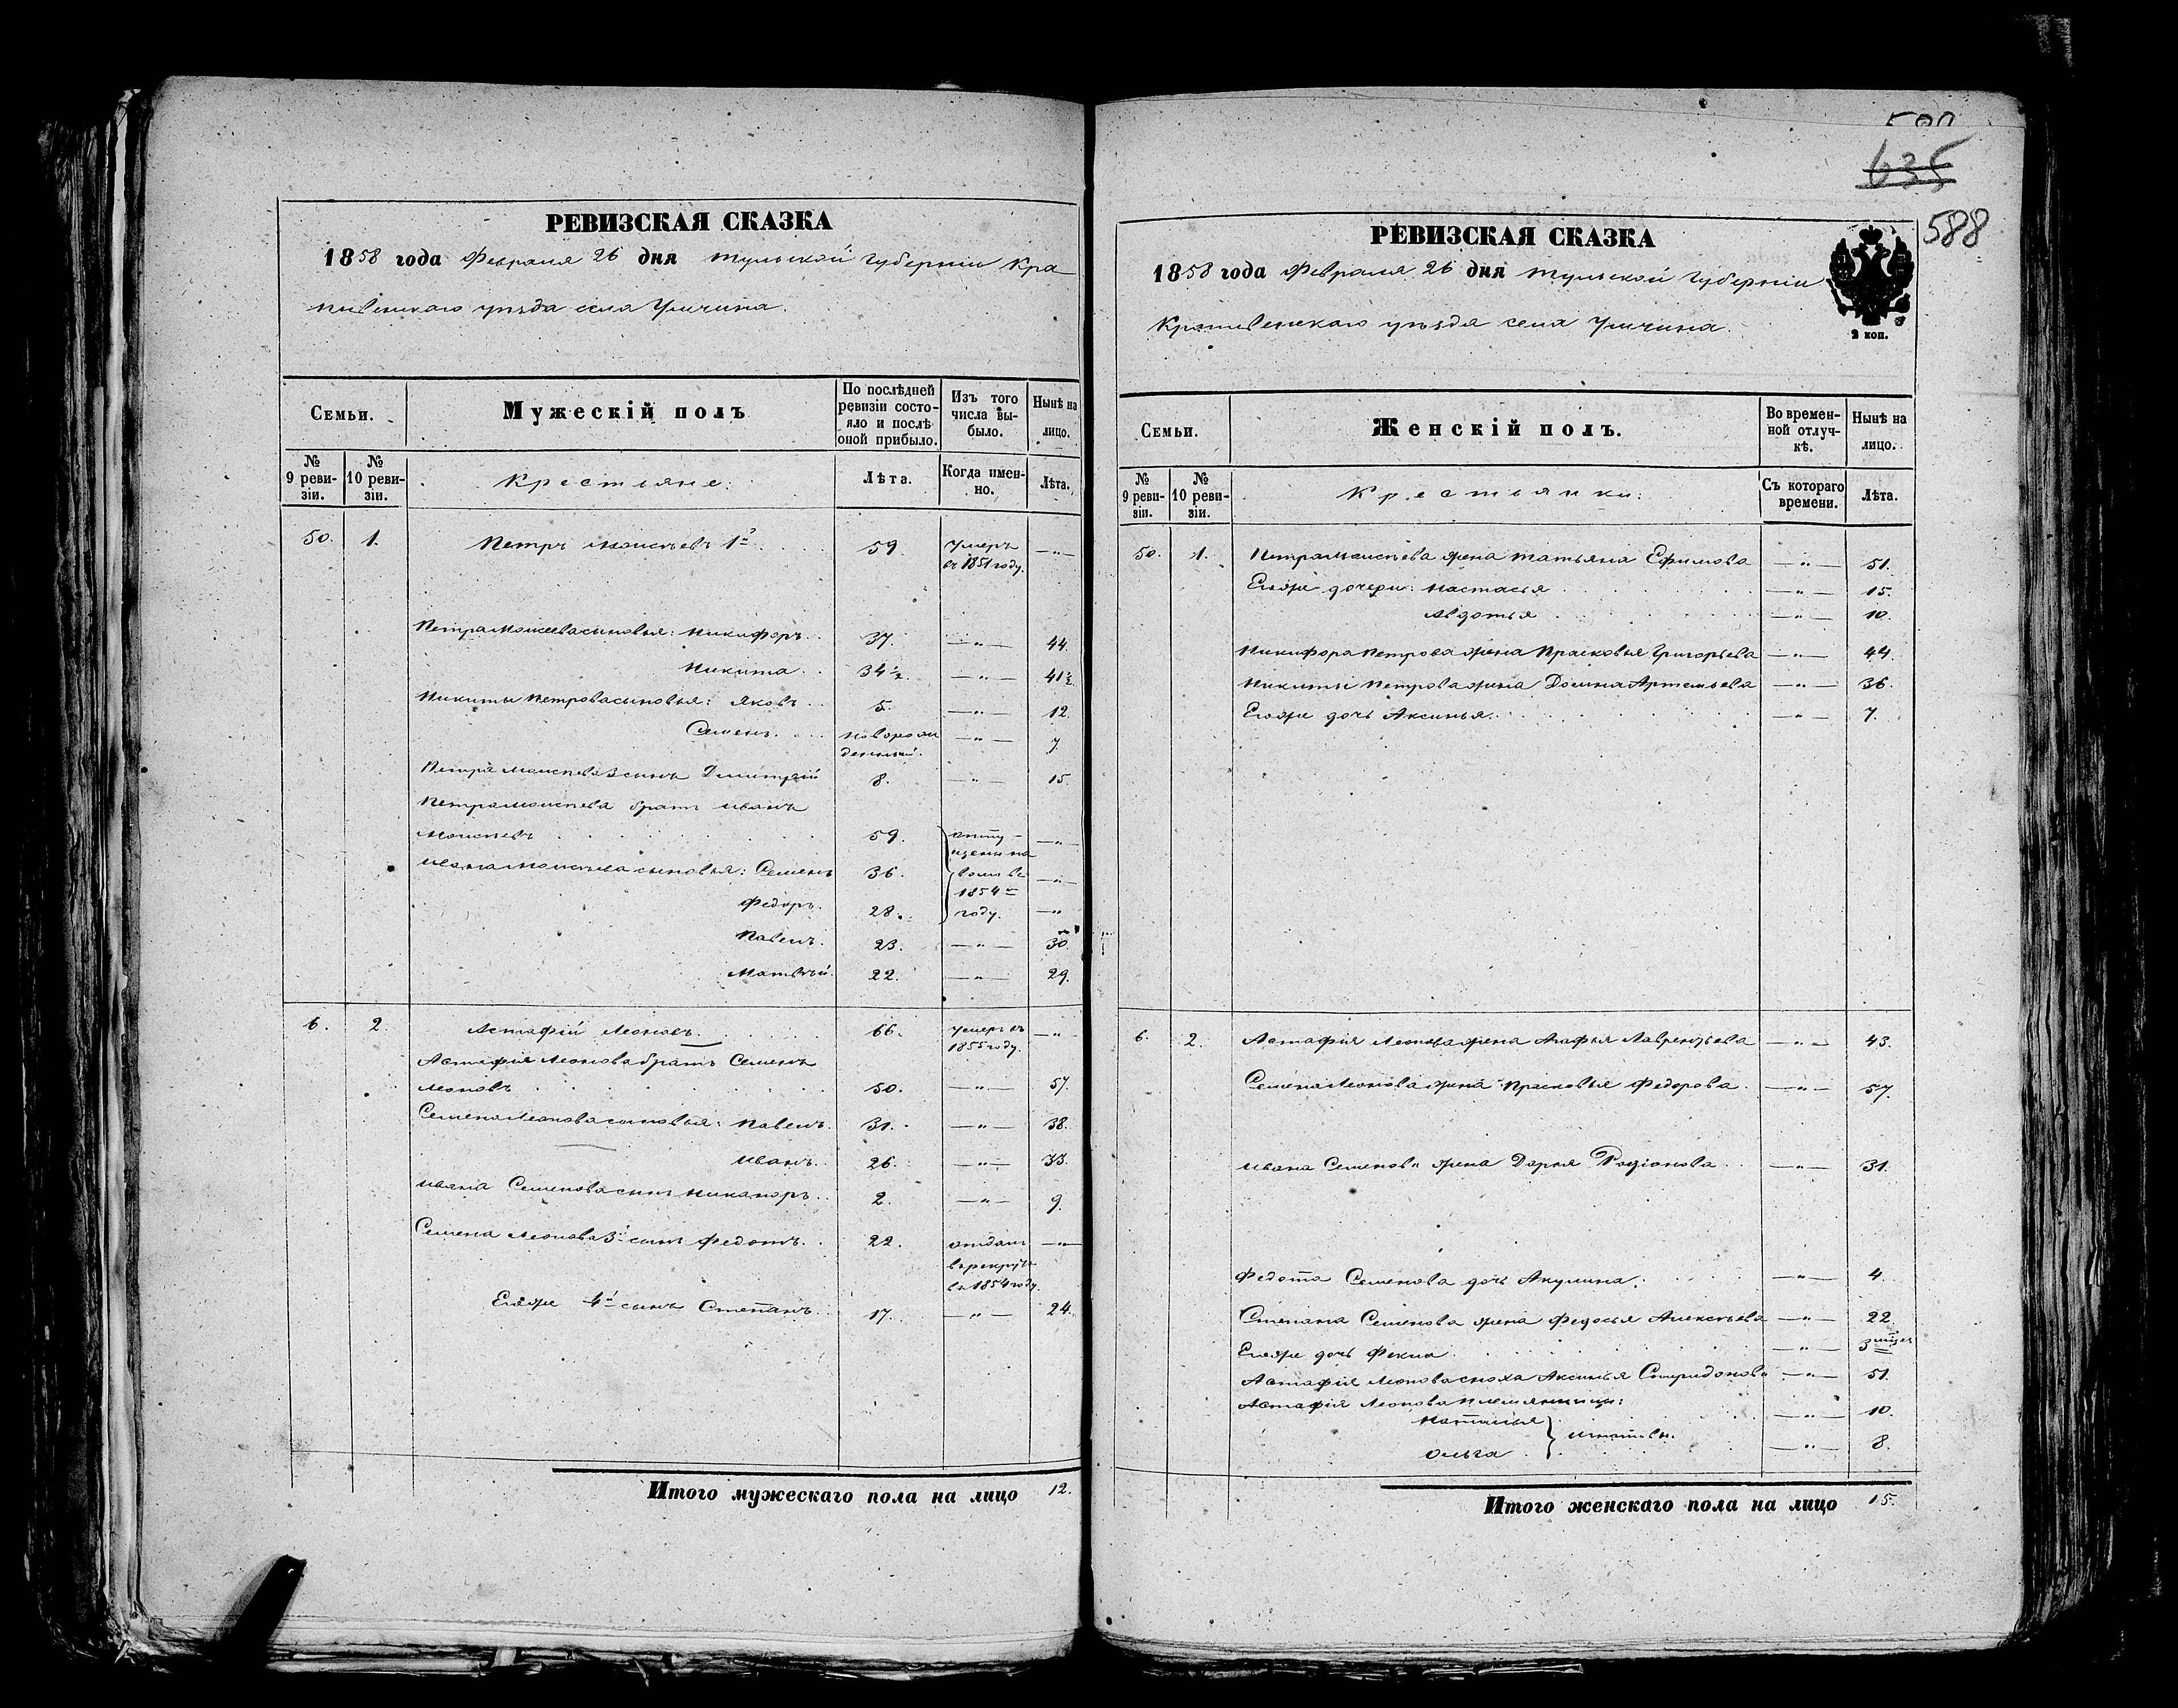 РЕВИЗСКАЯ СКАЗКА
1858 года Февраля 26 дня Тульской Губернiи Кра
пивенскаго уѣзда села Уличина.
Семьи.
Мужескiй полъ
По послѣдней ревизiи состояло и послѣ оной прибыло.
Изъ того числа выбыло.
Нынѣ на лицо.
№ 9 ревизiи.
№ 10 ревизiи.
Крестьяне:
Лѣта.
Когда именно.
Лѣта.
50. 1. Петръ Моисѣевъ 1й 59. умеръ въ 1851 году. —„—
Петра Моисеева сыновья: Никифоръ. 37. —„— 44.
Никита. 34½. —„— 41½.
Никиты Петрова сыновья: Яковъ. 5. —„— 12.
Семенъ. новорожденный. —„— 7.
Петра Моисѣева 3 сынъ Дмитрiй 8. —„— 15.
Петра Моисѣева братъ Иванъ
Моисѣевъ 59. отпущены на —„—
Ивана Моисѣева сыновья: Семенъ 36. волю въ —„—
Федоръ. 28. 1854м году. —„
Павелъ. 23. —„— 30.
Матвѣй. 22. —„— 29.
6. 2. Астафiй Леоновъ. 66. умеръ въ 1855 году. —„—
Астафiя Леонова братъ Семенъ
Леоновъ 50. —„— 57.
Семена Леонова сыновья: Павелъ. 31. —„— 38.
Иванъ. 26. —„— 33.
Ивана Семенова сынъ Никаноръ. 2. —„— 9.
Семена Леонова 3й сынъ Федотъ. 22. отданъ —„—
въ рекруты
въ 1854 году.
Егоже 4й сынъ Степанъ. 17. —„— 24.
Итого мужескаго пола на лицо 12.
635
588
РЕВИЗСКАЯ СКАЗКА
1858 года Февраля 26 дня Тульской Губернiи
Крапивенскаго уѣзда села Уличина.
2 коп.
Семьи.
Женскiй полъ.
Во временной отлучкѣ.
Нынѣ на лицо.
№ 9 ревизiи.
№ 10 ревизiи.
Крестьянки:
Съ котораго времени.
Лѣта.
50. 1. Петра Моисѣева жена Татьяна Ефимова —„— 51.
Егоже дочери: Настасья —„— 15.
Авдотья —„— 10.
Никифора Петрова жена Прасковья Григорьева —„— 44.
Никиты Петрова жена Домна Артемьева —„— 36.
Егоже дочь Аксинья. —„— 7.
6. 2. Астафiя Леонова жена Агафья Лаврентьева —„— 43.
Семена Леонова жена Прасковья Федорова. —„— 57.
Ивана Семенова жена Дарья Родiонова —„— 31.
Федота Семенова дочь Акулина. —„— 4.
Степана Семенова жена Федосья Алексѣева —„— 22.
Егоже дочь Фекла —„—
Астафiя Леонова сноха Аксинья Спиридонова —„— 51.
Астафiя Леонова племянницы:
Наталья —„— 10.
Ольга —„— 8.
Итого женскаго пола на лицо 15.